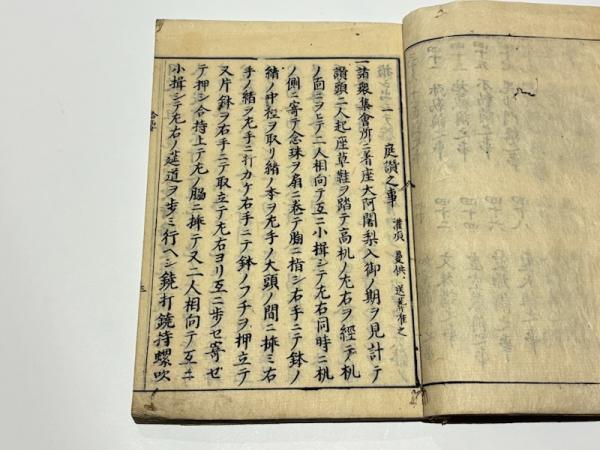 庭讃之事 灌頂 曼供 送葬有之
一諸衆集會所ニ着座大阿闍梨入御ノ期ヲ見計テ
讃頭二人起座草鞋ヲ踏テ高机ノ左右ヲ經テ机
ノ面ニヲヒテ二人相向テ互ニ小揖シテ左右同時ニ机
ノ側ニ寄テ念珠ヲ扇ニ巻テ胸ニ指シ右手ニテ鉢ノ
緒ノ中程ヲ取リ緒ノ本ヲ左手ノ大頭ノ間ニ挾ミ右
手ノ緒ヲ左手ニ打カケ右手ニテ鉢ノフチヲ押立テ
又片鉢ヲ右手ニテ取立テ左右ヨリ互ニ歩セ寄せ
テ押シ合持上テ左ノ脇ニ挾テ又二人相向テ互ニ
小揖シテ左右ノ莚道ヲ歩ミ行ヘシ鐃打鐃持螺吹